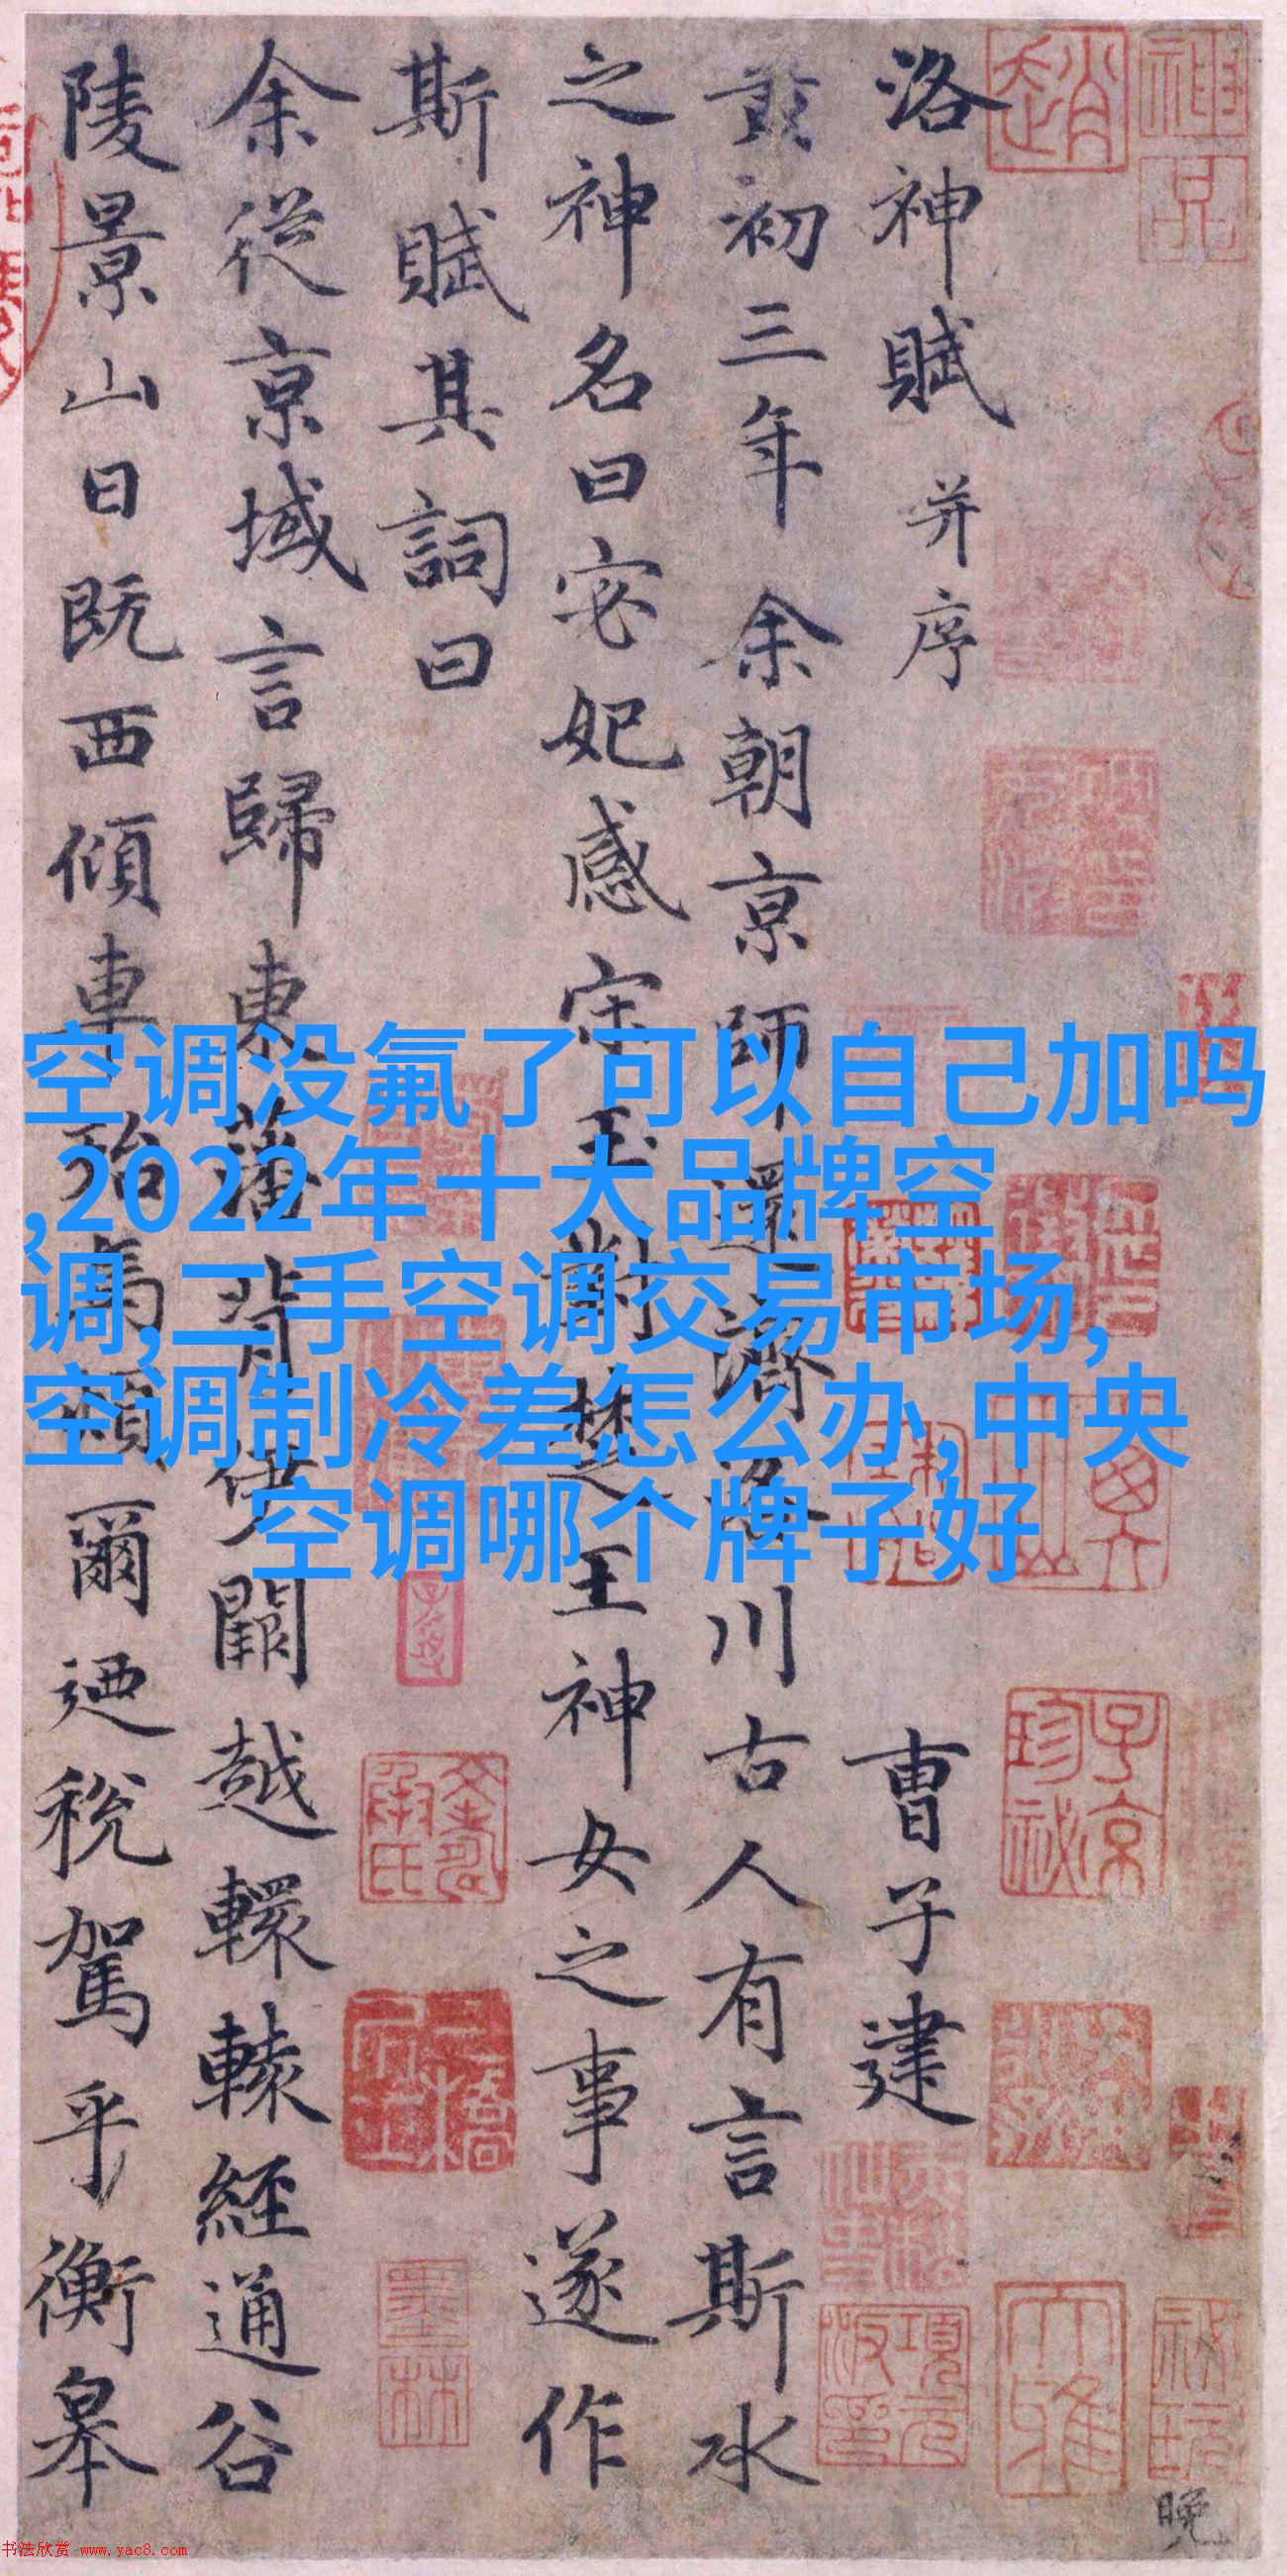 洛神賦 并序 曹子建
黃初三年余朝京師還濟洛川古人有言斯水
之神名曰宓妃感宋玉對楚王神女之事遂作
斯賦其詞曰
余從京域言歸東藩背伊闕越轘轅經通谷
陵景山日既西傾車殆馬煩爾迺稅駕乎衡皋
空调没氟了可以自己加吗
,2022年十大品牌空
调,二手空调交易市场,
空调制冷差怎么办,中央
空调哪个牌子好
子京珍秘
墨林
晚
书法欣赏 www.yac8.com